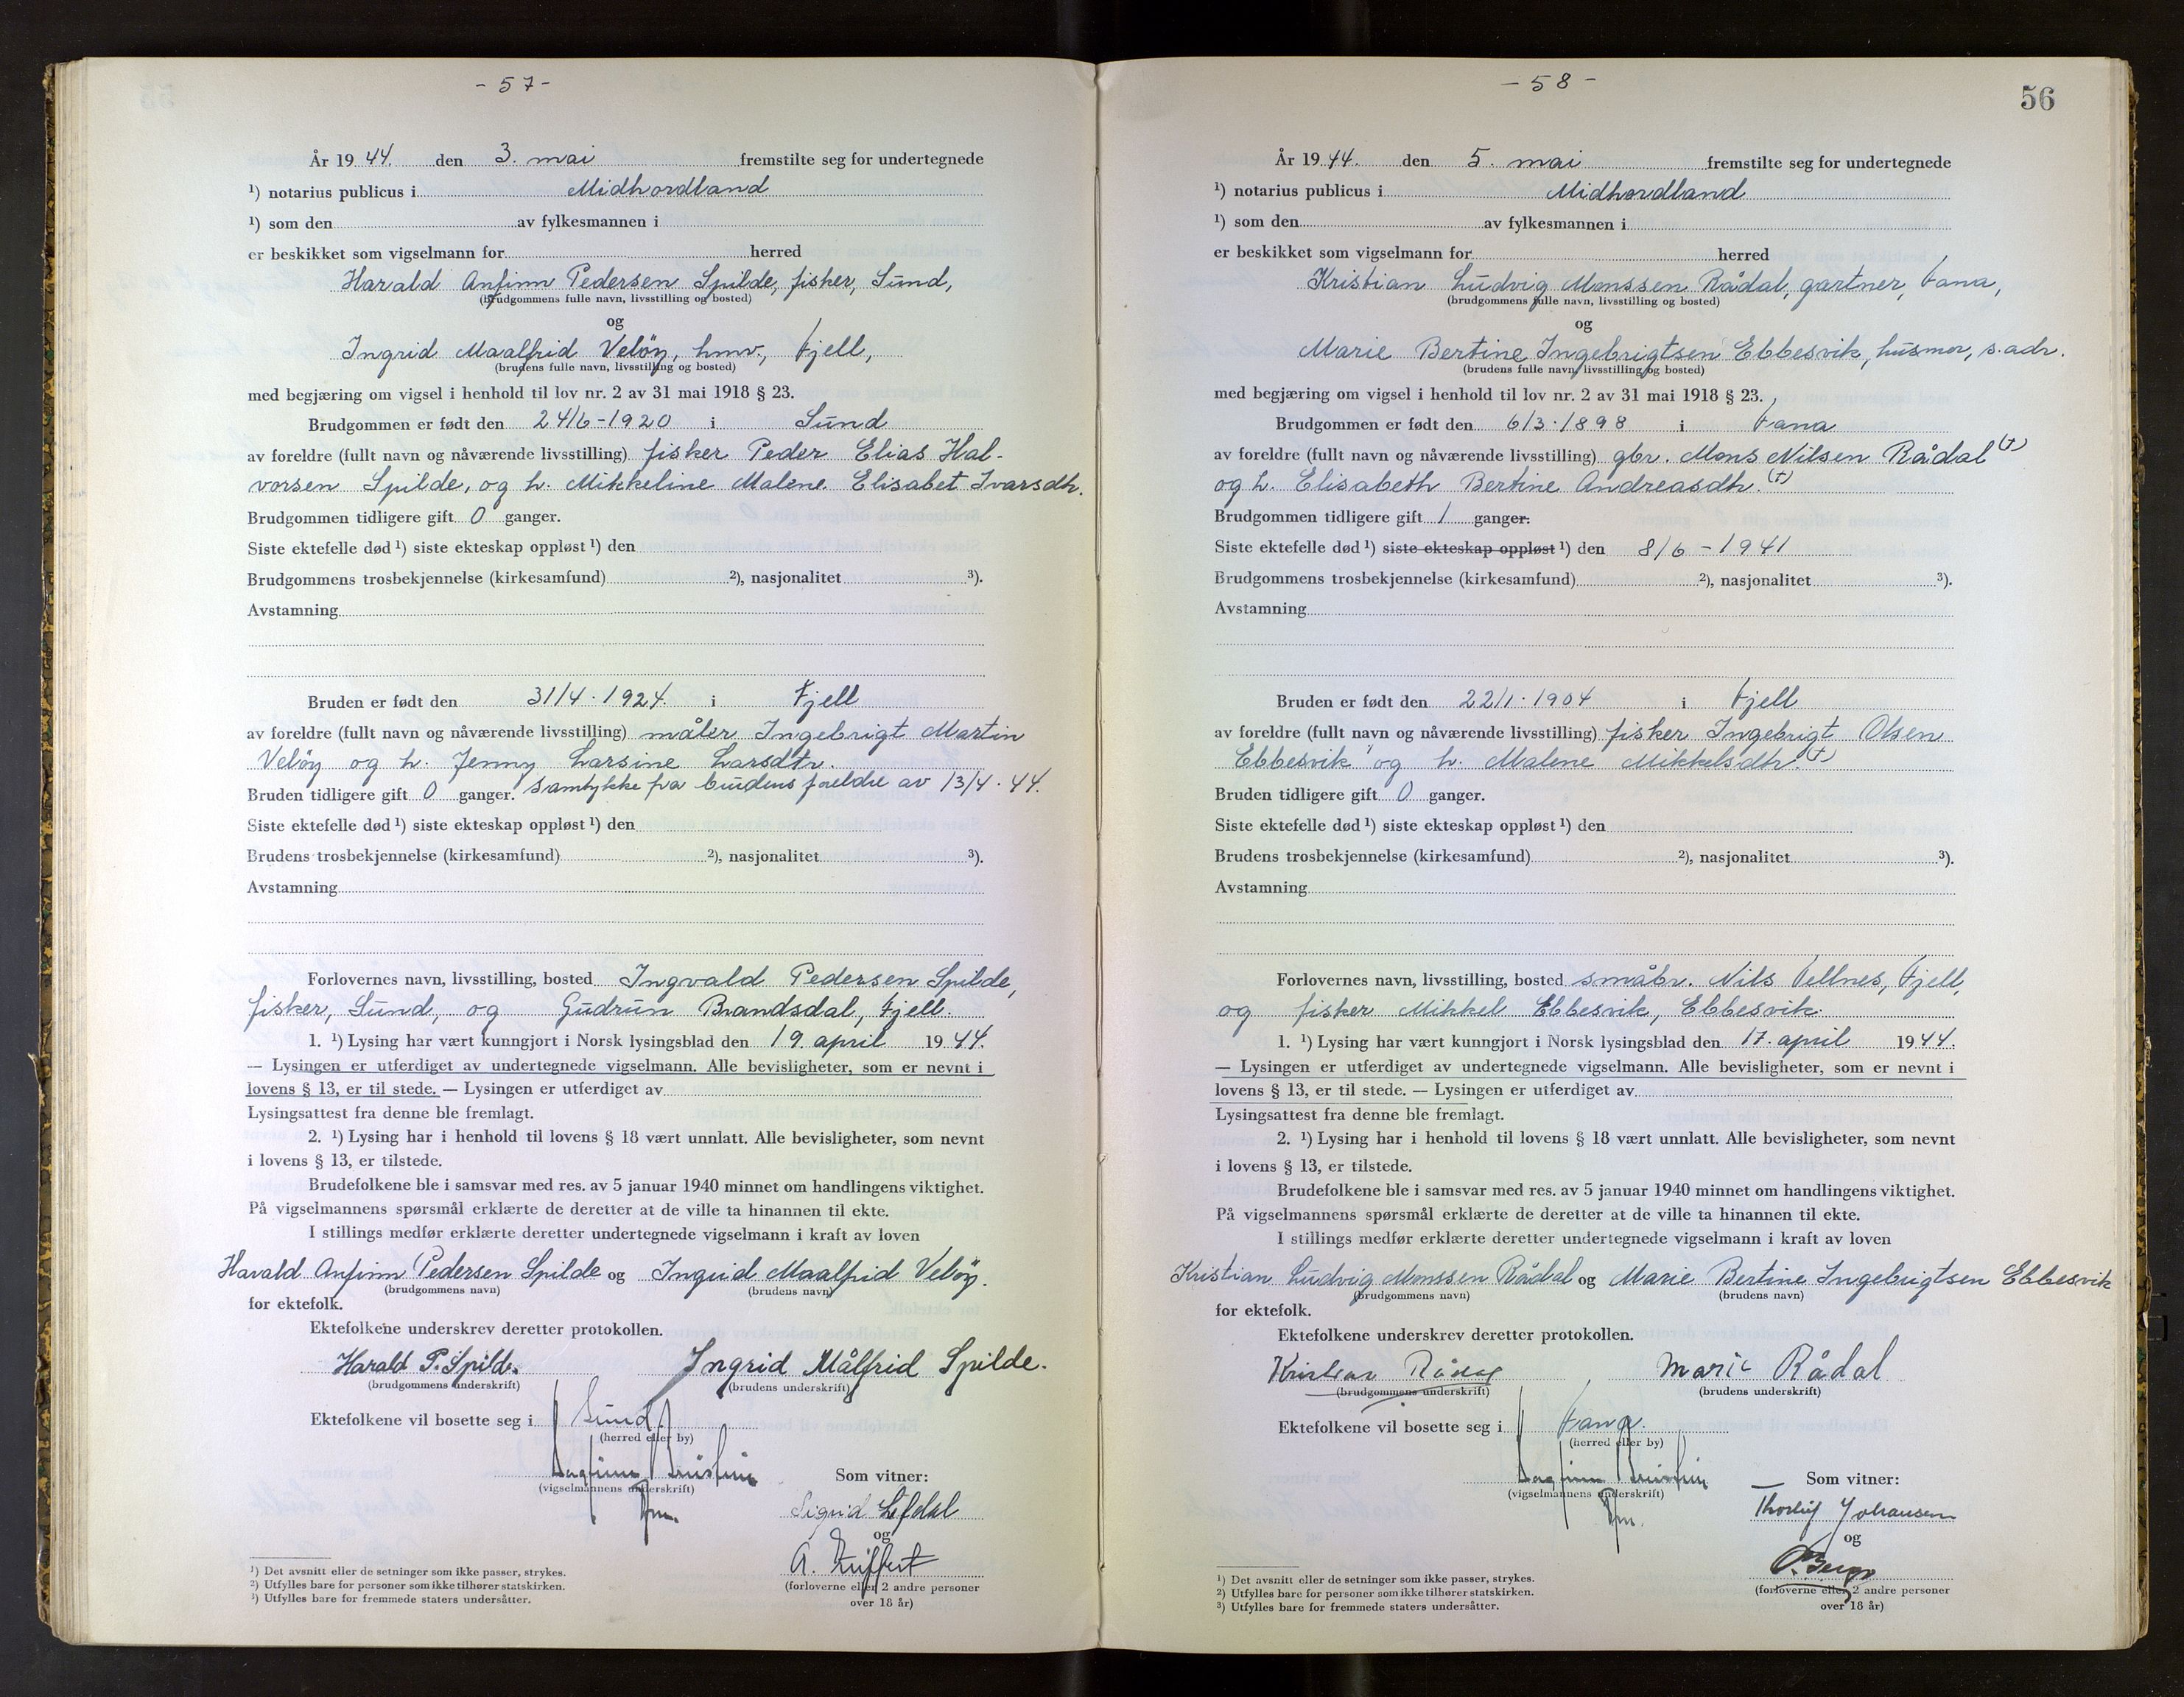 - 57 -
År 19 44. den 3. mai fremstilte seg for undertegnede
¹) notarius publicus i Midhordland
¹) som den av fylkesmannen i
er beskikket som vigselmann for herred
Harald Anfinn Pedersen Spilde, fisker, Sund,
(brudgommens fulle navn, livsstilling og bosted)
og
Ingrid Maalfrid Veløy, hmv., Fjell,
(brudens fulle navn, livsstilling og bosted)
med begjæring om vigsel i henhold til lov nr. 2 av 31 mai 1918 § 23.
Brudgommen er født den 24/6-1920 i Sund
av foreldre (fullt navn og nåværende livsstilling) fisker Peder Elias Hal-
vorsen Spilde, og h. Mikkeline Malene Elisabet Ivarsdtr.
Brudgommen tidligere gift 0 ganger.
Siste ektefelle død ¹) siste ekteskap oppløst ¹) den
Brudgommens trosbekjennelse (kirkesamfund) ²), nasjonalitet ³).
Avstamning
Bruden er født den 31/4.1924. i Fjell
av foreldre (fullt navn og nåværende livsstilling) måler Ingebrigt Martin
Veløy og h. Jenny Larsine Larsdtr.
Bruden tidligere gift 0 ganger. Samtykke fra brudens foreldre av 13/4.44.
Siste ektefelle død ¹) siste ekteskap oppløst ¹) den
Brudens trosbekjennelse (kirkesamfund) ²), nasjonalitet ³).
Avstamning
Forlovernes navn, livsstilling, bosted Ingvald Pedersen Spilde,
fisker, Sund, og Gudrun Brandsdal, Fjell.
1. ¹) Lysing har vært kunngjort i Norsk lysingsblad den 19. april 19 44.
— Lysingen er utferdiget av undertegnede vigselmann. Alle bevisligheter, som er nevnt i
lovens § 13, er til stede. — Lysingen er utferdiget av
Lysingsattest fra denne ble fremlagt.
2. ¹) Lysing har i henhold til lovens § 18 vært unnlatt. Alle bevisligheter, som nevnt
i lovens § 13, er tilstede.
Brudefolkene ble i samsvar med res. av 5 januar 1940 minnet om handlingens viktighet.
På vigselmannens spørsmål erklærte de deretter at de ville ta hinannen til ekte.
I stillings medfør erklærte deretter undertegnede vigselmann i kraft av loven
Harald Anfinn Pedersen Spilde og Ingrid Maalfrid Veløy.
(brudgommens navn) (brudens navn)
for ektefolk.
Ektefolkene underskrev deretter protokollen.
Harald P. Spilde. Ingrid Målfrid Spilde.
(brudgommens underskrift) (brudens underskrift)
Ektefolkene vil bosette seg i Sund.
(herred eller by)
Som vitner:
(vigselmannens underskrift)
Sigrid Lefdal
og
A.
(forloverne eller 2 andre personer
over 18 år)
¹) Det avsnitt eller de setninger som ikke passer, strykes.
²) Utfylles bare for personer som ikke tilhører statskirken.
³) Utfylles bare for fremmede staters undersåtter.
- 58 -
56
År 19 44. den 5. mai fremstilte seg for undertegnede
¹) notarius publicus i Midhordland
¹) som den av fylkesmannen i
er beskikket som vigselmann for herred
Kristian Ludvig Monssen Rådal, gartner, Fana,
(brudgommens fulle navn, livsstilling og bosted)
og
Marie Bertine Ingebrigtsen Ebbesvik, husmor, s. adr.
(brudens fulle navn, livsstilling og bosted)
med begjæring om vigsel i henhold til lov nr. 2 av 31 mai 1918 § 23.
Brudgommen er født den 6/3.1898 i Fana
av foreldre (fullt navn og nåværende livsstilling) gbr. Mons Nilsen Rådal (†)
og h. Elisabeth Bertine Andreasdtr. (†)
Brudgommen tidligere gift 1 ganger.
Siste ektefelle død ¹) siste ekteskap oppløst ¹) den 8/6 - 1941
Brudgommens trosbekjennelse (kirkesamfund) ²), nasjonalitet ³).
Avstamning
Bruden er født den 22/1.1904 i Fjell
av foreldre (fullt navn og nåværende livsstilling) fisker Ingebrigt Olsen
Ebbesvik og h. Malene Mikkelsdtr. (†)
Bruden tidligere gift 0 ganger.
Siste ektefelle død ¹) siste ekteskap oppløst ¹) den
Brudens trosbekjennelse (kirkesamfund) ²), nasjonalitet ³).
Avstamning
Forlovernes navn, livsstilling, bosted småbr. Nils Vellnes, Fjell,
og fisker Mikkel Ebbesvik, Ebbesvik.
1. ¹) Lysing har vært kunngjort i Norsk lysingsblad den 17. april 19 44.
— Lysingen er utferdiget av undertegnede vigselmann. Alle bevisligheter, som er nevnt i
lovens § 13, er til stede. — Lysingen er utferdiget av
Lysingsattest fra denne ble fremlagt.
2. ¹) Lysing har i henhold til lovens § 18 vært unnlatt. Alle bevisligheter, som nevnt
i lovens § 13, er tilstede.
Brudefolkene ble i samsvar med res. av 5 januar 1940 minnet om handlingens viktighet.
På vigselmannens spørsmål erklærte de deretter at de ville ta hinannen til ekte.
I stillings medfør erklærte deretter undertegnede vigselmann i kraft av loven
Kristian Ludvig Monssen Rådal og Marie Bertine Ingebrigtsen Ebbesvik
(brudgommens navn) (brudens navn)
for ektefolk.
Ektefolkene underskrev deretter protokollen.
Kristian Rådal Marie Rådal
(brudgommens underskrift) (brudens underskrift)
Ektefolkene vil bosette seg i Fana.
(herred eller by)
Som vitner:
(vigselmannens underskrift)
Thorleif Johansen
og
(forloverne eller 2 andre personer
over 18 år)
¹) Det avsnitt eller de setninger som ikke passer, strykes.
²) Utfylles bare for personer som ikke tilhører statskirken.
³) Utfylles bare for fremmede staters undersåtter.